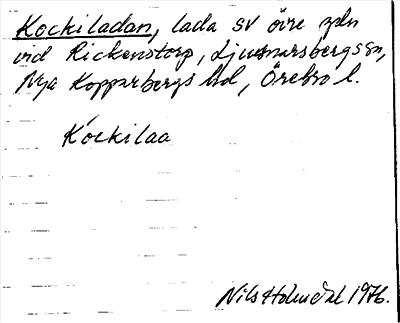 Kockiladan, lada SV övre
vid Rickenstorp, Ljusnarsbergs sn,
Nya Kopparbergs bld, Örebro l.
Kockilaa
Nils Holmdal 1976.